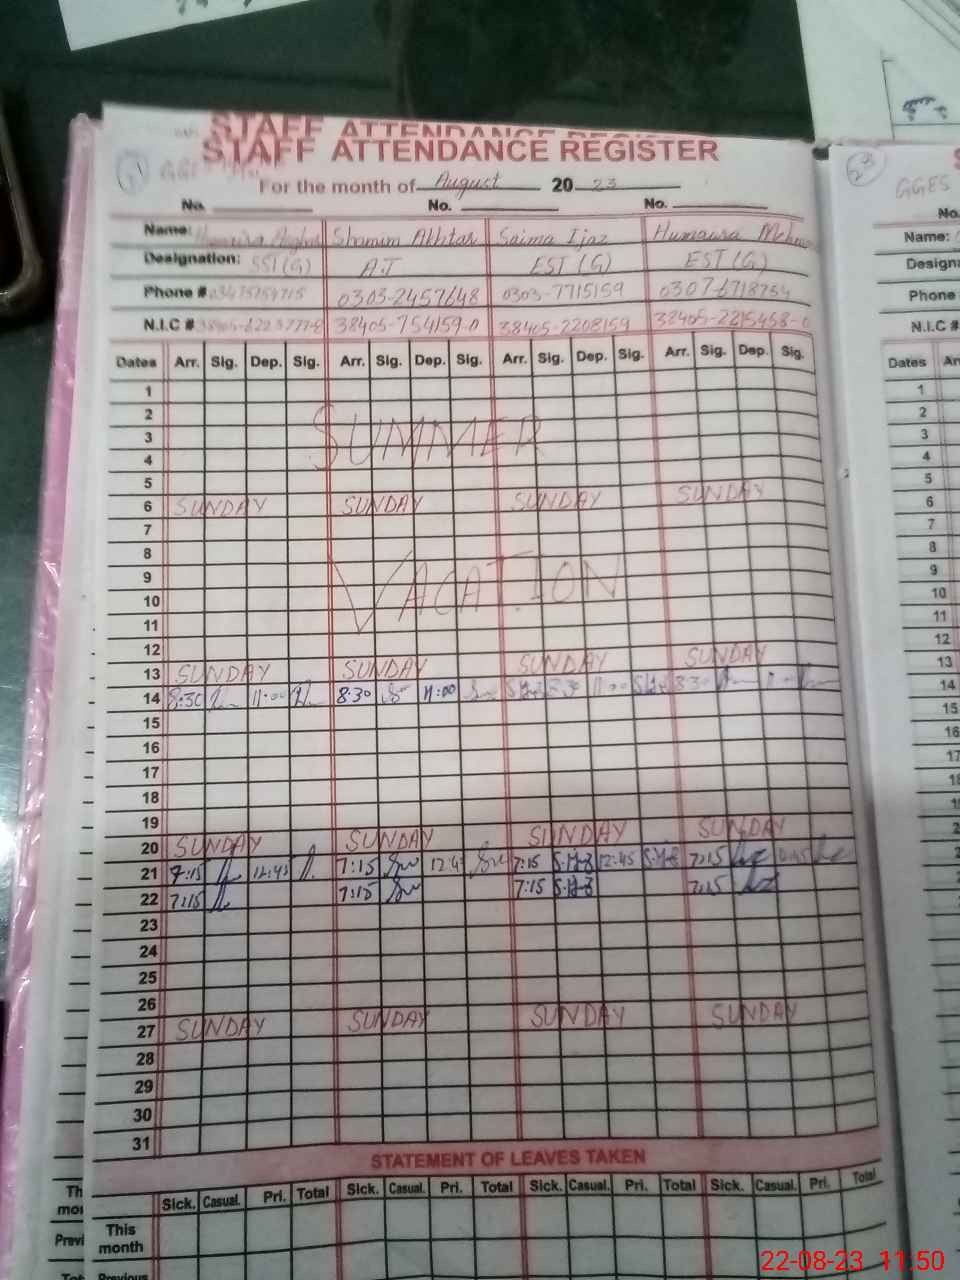 STAFF ATTENDANCE REGISTER
STAFF ATTENDANCE REGISTER
For the month of August 2023
No. No. No.
Name: Humaira Shamim Akhtar Saima Ijaz Humaira
Designation: SST(G) A.T EST (G) EST (G)
Phone # 0303-2457648 0303-7715159 0307-6718754
N.I.C # 38405-754159-0 38405-2208159
Dates Arr. Sig. Dep. Sig. Arr. Sig. Dep. Sig. Arr. Sig. Dep. Sig. Arr. Sig. Dep. Sig.
1
2
3 SUMMER
4
5
6 SUNDAY SUNDAY SUNDAY SUNDAY
7
8
9
10 VACATION
11
12
13 SUNDAY SUNDAY SUNDAY SUNDAY
14 8:30 11:00 8:30 11:00 8:30 11:00 8:30
15
16
17
18
19
20 SUNDAY SUNDAY SUNDAY SUNDAY
21 7:15 12:45 7:15 12:4 7:15 12:45 7:15
22 7:15 7:15 7:15 7:15
23
24
25
26
27 SUNDAY SUNDAY SUNDAY SUNDAY
28
29
30
31
STATEMENT OF LEAVES TAKEN
Sick. Casual. Pri. Total Sick. Casual. Pri. Total Sick. Casual. Pri. Total Sick. Casual. Pri. Total
This month
Previous
23
GGES
No.
Name:
Design
Phone #
N.I.C #
Dates
1
2
3
4
5
6
7
8
9
10
11
12
13
14
15
16
17
18
22-08-23 11:50